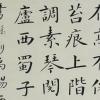 在高有
苔痕上階
調素琴閱
廬西蜀子